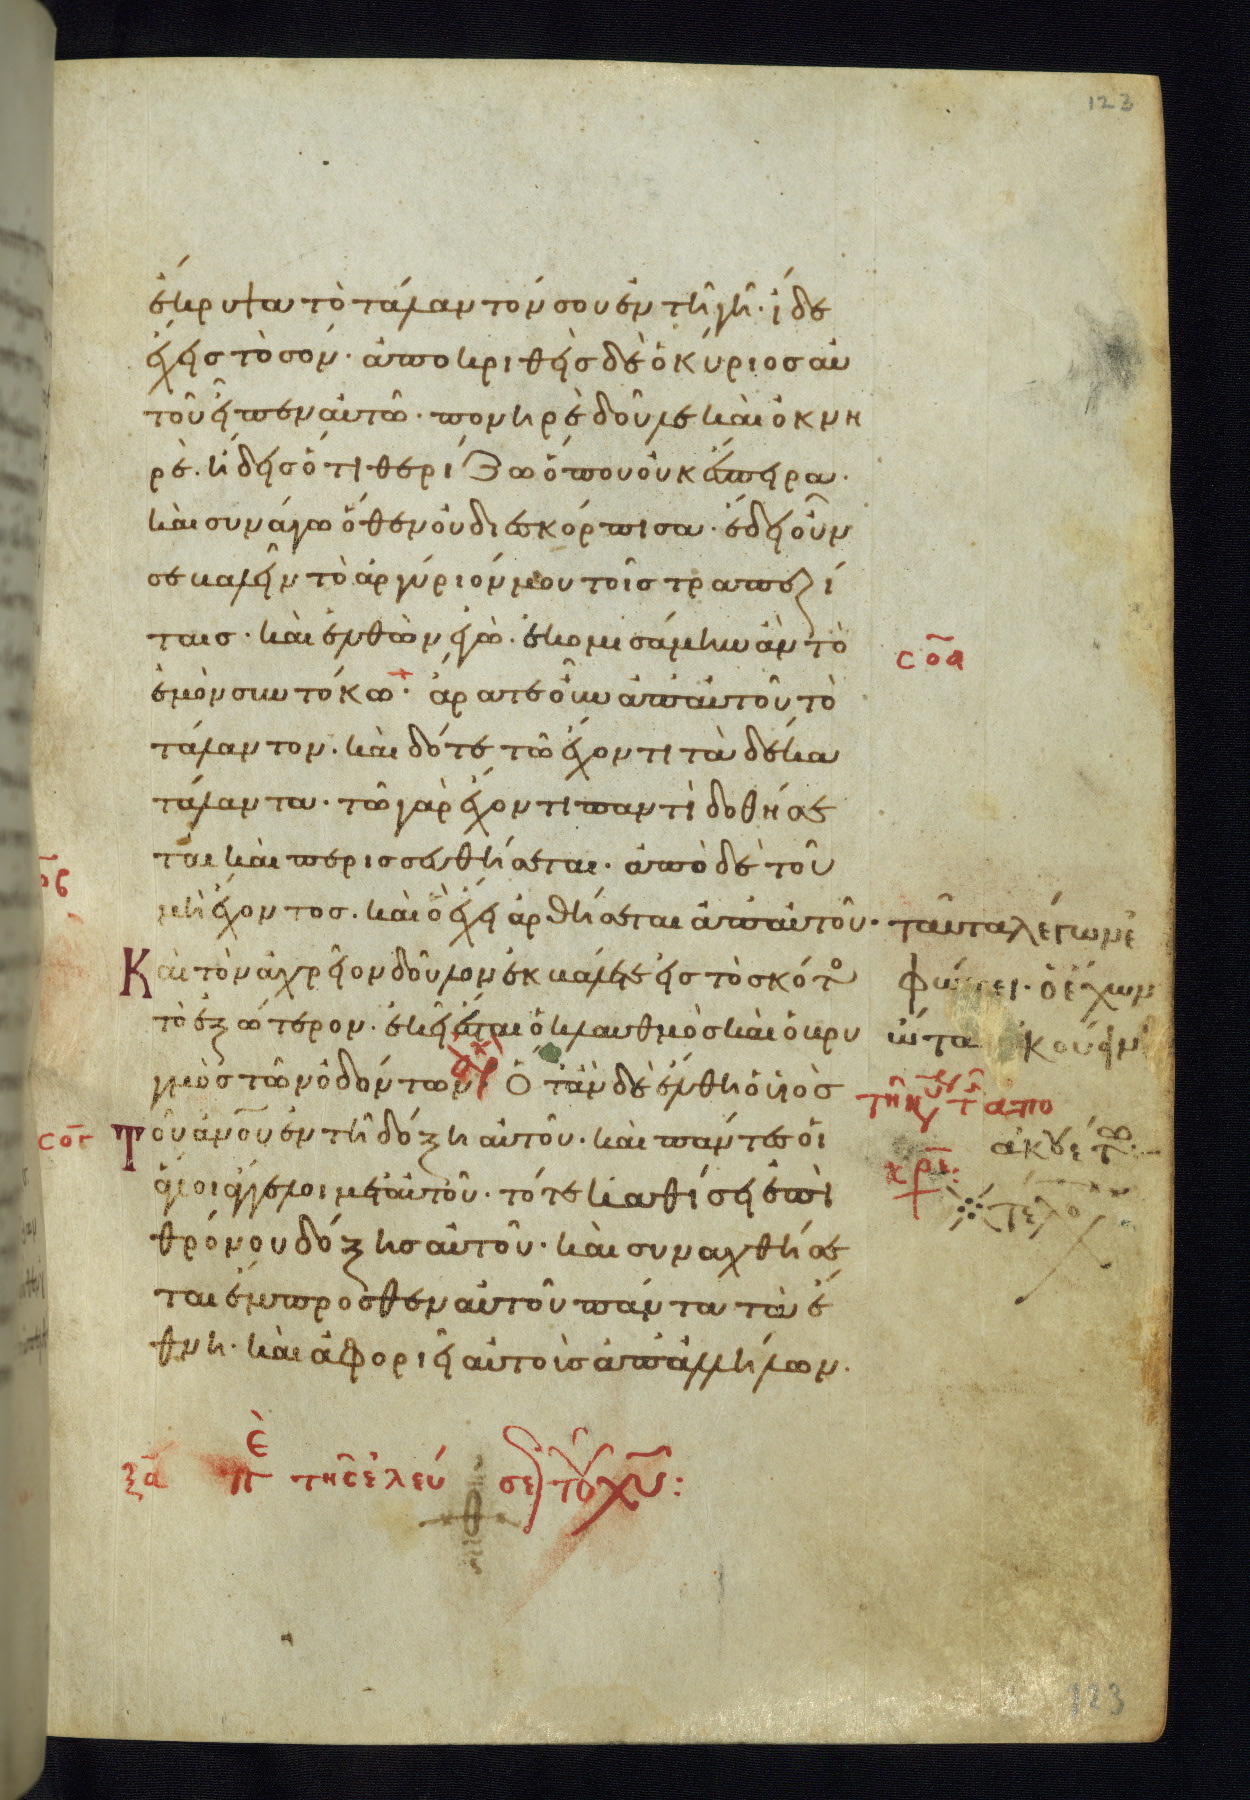 123
ἔκρυψα τὸ τάλαντόν σου ἐν τῆ γῆ· ἴδε
ἔχεις τὸ σόν· ἀποκριθεὶς δὲ ὁ κύριος αὐ
τοῦ εἶπεν αὐτῶ· πονηρὲ δοῦλε καὶ ὀκνη
ρέ· ἤδεις ὅτι θερίζω ὅπου οὐκ ἔσπειρα·
καὶ συνάγω ὅθεν οὐ διεσκόρπισα· ἔδει οὖν
σε βαλεῖν τὸ ἀργύριόν μου τοῖς τραπεζί
ταις· καὶ ἐλθὼν ἐγὼ· ἐκομισάμην ἂν τὸ
σοα
ἐμὸν σὺν τόκω· ἄρατε οὖν ἀπ' αὐτοῦ τὸ
τάλαντον· καὶ δότε τῶ ἔχοντι τὰ δέκα
τάλαντα· τῶ γὰρ ἔχοντι παντὶ δοθήσε
ται καὶ περισσευθήσεται· ἀπὸ δὲ τοῦ
μὴ ἔχοντος· καὶ ὃ ἔχει ἀρθήσεται ἀπ' αὐτοῦ· ταῦτα λέγων ἐ
Καὶ τὸν ἀχρεῖον δοῦλον ἐκβάλετε εἰς τὸ σκότο φώνει· ὁ ἔχων
τὸ ἐξώτερον· ἐκεῖ ἔσται ὁ κλαυθμὸς καὶ ὁ βρυ ὦτα ἀκούειν
γμὸς τῶν ὀδόντων· Ὅταν δὲ ἔλθη ὁ υἱὸς
τῆ κυ τ απο
σογ Τοῦ ἀνου ἐν τῆ δόξη αὐτοῦ· καὶ πάντες οἱ
ἀκουέτω·
ἅγιοι ἄγγελοι μετ' αὐτοῦ· τότε καθίσει ἐπὶ
τέλο
θρόνου δόξης αὐτοῦ· καὶ συναχθήσε
ται ἔμπροσθεν αὐτοῦ πάντα τὰ ἔ
θνη· καὶ ἀφοριεῖ αὐτοὺς ἀπ' ἀλλήλων·
ξα πε τῆς ἐλεύσε του χυ:
123